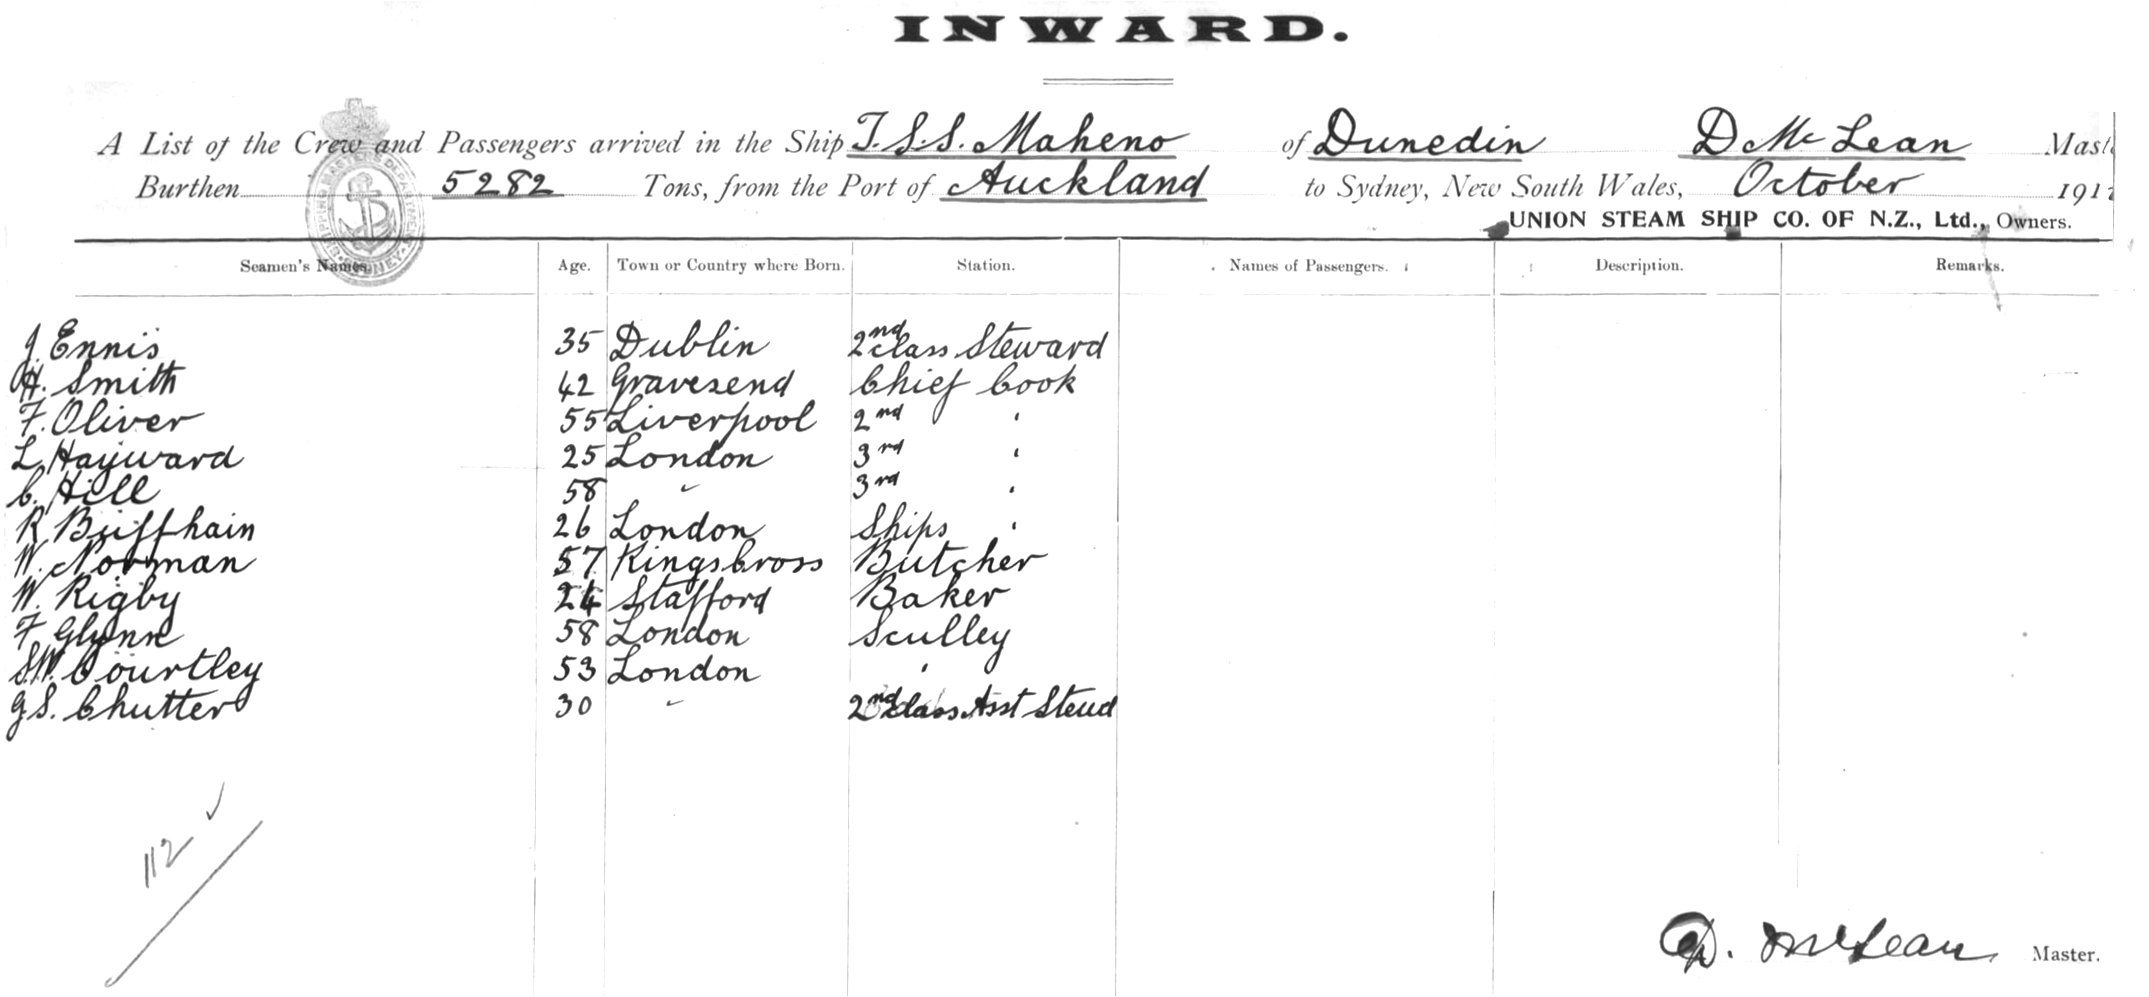 INWARD.
A List of the Crew and Passengers arrived in the Ship T.S.S. Maheno of Dunedin D Mc Lean Mast
Burthen 5282 Tons, from the Port of Auckland to Sydney, New South Wales, October 191
UNION STEAM SHIP CO. OF N.Z., Ltd., Owners.
Seamen's Names. Age. Town or Country where Born. Station. Names of Passengers. Description. Remarks.
J. Ennis 35 Dublin 2nd class Steward
H. Smith 42 Gravesend Chief Cook
F. Oliver 55 Liverpool 2nd '
L Hayward 25 London 3rd '
C. Hill 58 " 3rd '
R Buffhain 26 London Ships '
W. Norman 57 Kings Cross Butcher
W. Rigby 24 Stafford Baker
F Glynn 58 London Sculley
S.W. Courtley 53 London '
G.S. Chutter 30 " 2nd class Asst Steud
112 ✓
D. McLean Master.